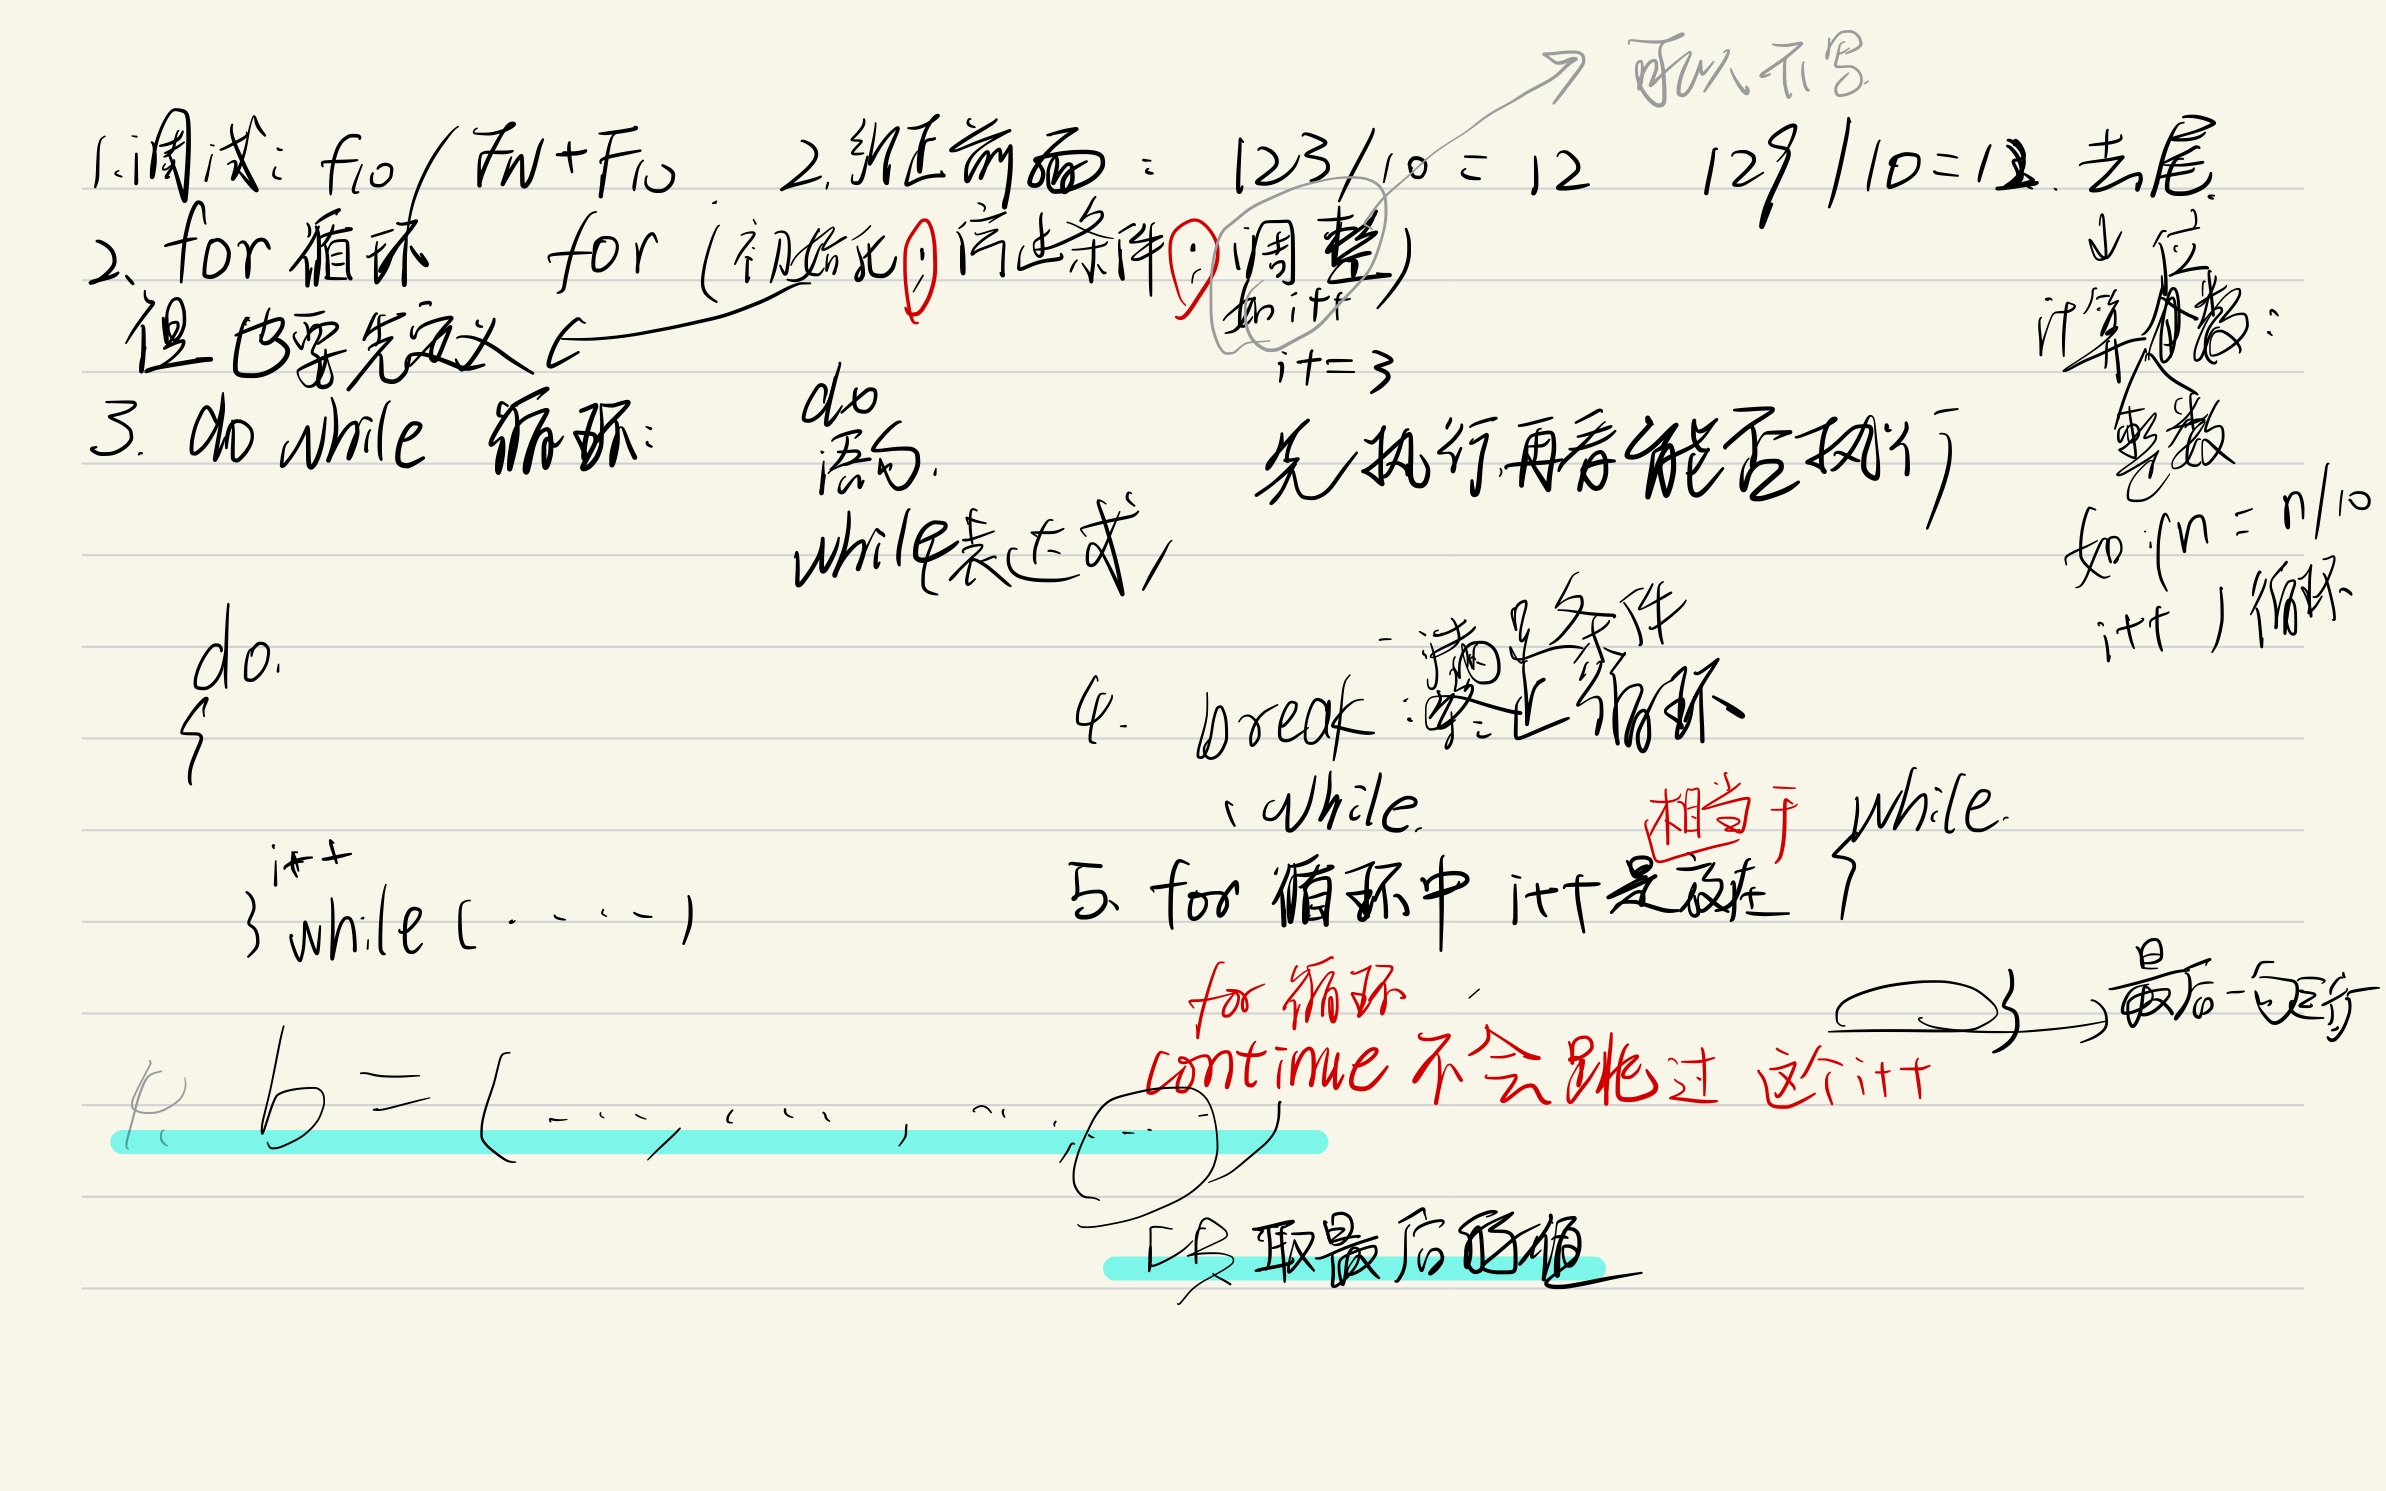 可以不写
1.调试: f10 / fN+F10 2. 前面: 123/10=12 129/10=12. 去尾
2、for循环 for (初始化;停止条件;调整)
如 i++
但也要先定义
i+=3
↓
计算位数:
整数
如 n=n/10
i++ 循环
3. do while 循环: do 先执行再看能否执行
语句.
while 表达式
do.
{
i++
} while (……)
满足条件
4. break: 终止循环
while.
5、for 循环中 i++是放在 相当于 while.
{
} 最后一句运行
for 循环
continue 不会跳过 这个i++
b = (……, ……, …… , ……)
只取最后的值